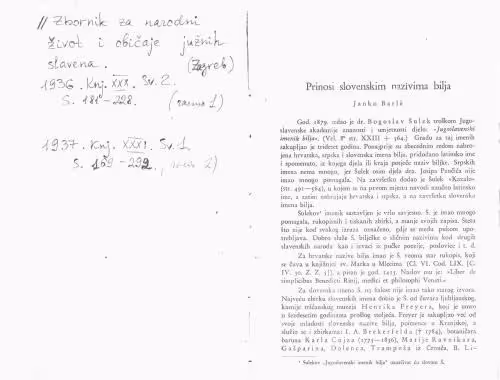 // Zbornik za narodni
život i običaje južnih
slavena. (Zagreb)
1936. Knj. XXX. Sv. 2.
S. 181-228.
1937. Knj. XXXI. Sv. 1.
S. 2)
Prinosi slovenskim nazivima bilja
Janko Barlè
God. 1879. izdao je dr. Bogoslav Šulek troškom Jugo-
slavenske akademije znanosti i umjetnosti djelo: »Jugoslavenski
imenik bilja«. (Vel. 8º str. XXIII + 564.) Građu za taj imenik
sakupljao je trideset godina. Ponajprije su abecednim redom nabro-
jena hrvatska, srpska i slovenska imena bilja, pridodano latinsko ime
i spomenuto, iz kojega djela ili kraja potječe naziv biljke. Srpskih
imena nema mnogo, jer Šulek osim djela dra. Josipa Pančića nije
imao mnogo pomagala. Na završetku dodao je Šulek »Kazalo«
(str. 491—564), u kojem je na prvom mjestu navodi naučno latinsko
ime, a zatim nabrajaju hrvatska i srpska, a na završetku slovenska
imena bilja.
Šulekov¹ imenik sastavljen je vrlo savjesno. Š. je imao mnogo
pomagala, rukopisnih i tiskanih zbirki, a manje svojih zapisa. Šteta
što nije kod svakog izraza označeno, gdje se među pukom upo-
trebljava. Dobro služe Š. bilješke o sličnim nazivima kod drugih
slavenskih naroda kao i izvaci iz pučke poezije, poslovice i t. d.
Za hrvatske nazive bilja imao je Š. veoma star rukopis, koji
se čuva u knjižnici sv. Marka u Mlecima (Cl. VI. Cod. LIX. [C.
IV. 30. Z. Z. 3]), a pisan je god. 1415. Naslov mu je: »Liber de
simplicibus Benedicti Rinij, medici et philosophi Veneti.«
Za slovenska imena Š. na žalost nije imao tako starog izvora.
Najveću zbirku slovenskih imena dobio je Š. od čuvara ljubljanskog,
kasnije tršćanskog muzeja Henrika Freyera, koji je umro
u šezdesetim godinama prošlog stoljeća. Freyer je sakupljao već od
svoje mladosti slovenske nazive bilja, poimence u Kranjskoj, a
služio se i zbirkama: I. A. Brekerfelda († 1784), botaničara
baruna Karla Cojza (1775—1836), Matije Ravnikara,
Gašparina, Dolenca, Trampuša iz Crnuča, B. Li-
¹ Šulekov »Jugoslavenski imenik bilja« označivat ću slovom Š.